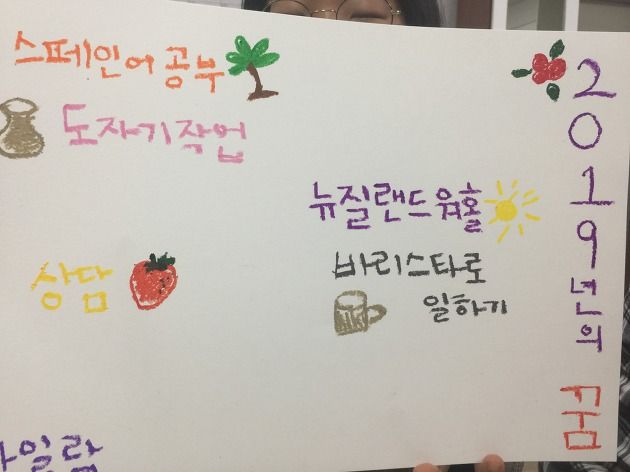 스페인어 공부
도자기작업
뉴질랜드 워홀
바리스타로
일하기
상담
일람
2019년의 꿈